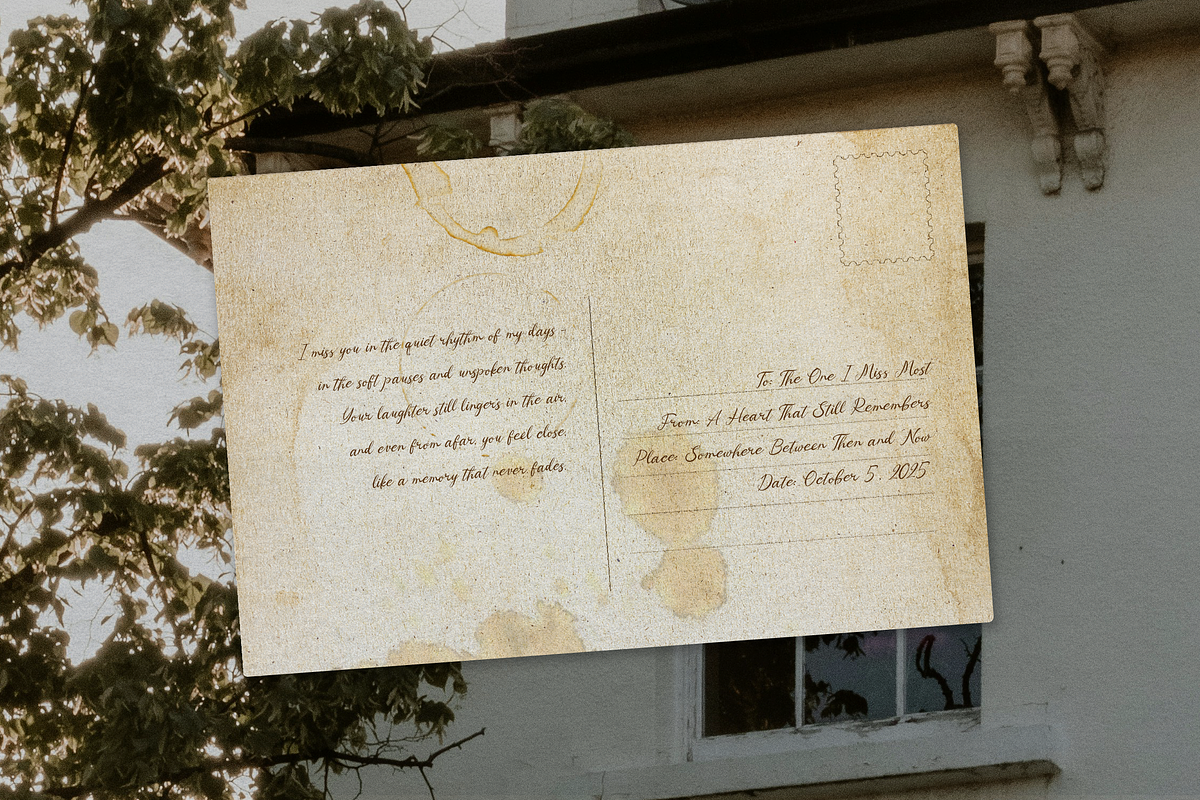 I miss you in the quiet rhythm of my days -
in the soft pauses and unspoken thoughts.
Your laughter still lingers in the air,
and even from afar, you feel close,
like a memory that never fades.
To: The One I Miss Most
From: A Heart That Still Remembers
Place: Somewhere Between Then and Now
Date: October 5, 2025